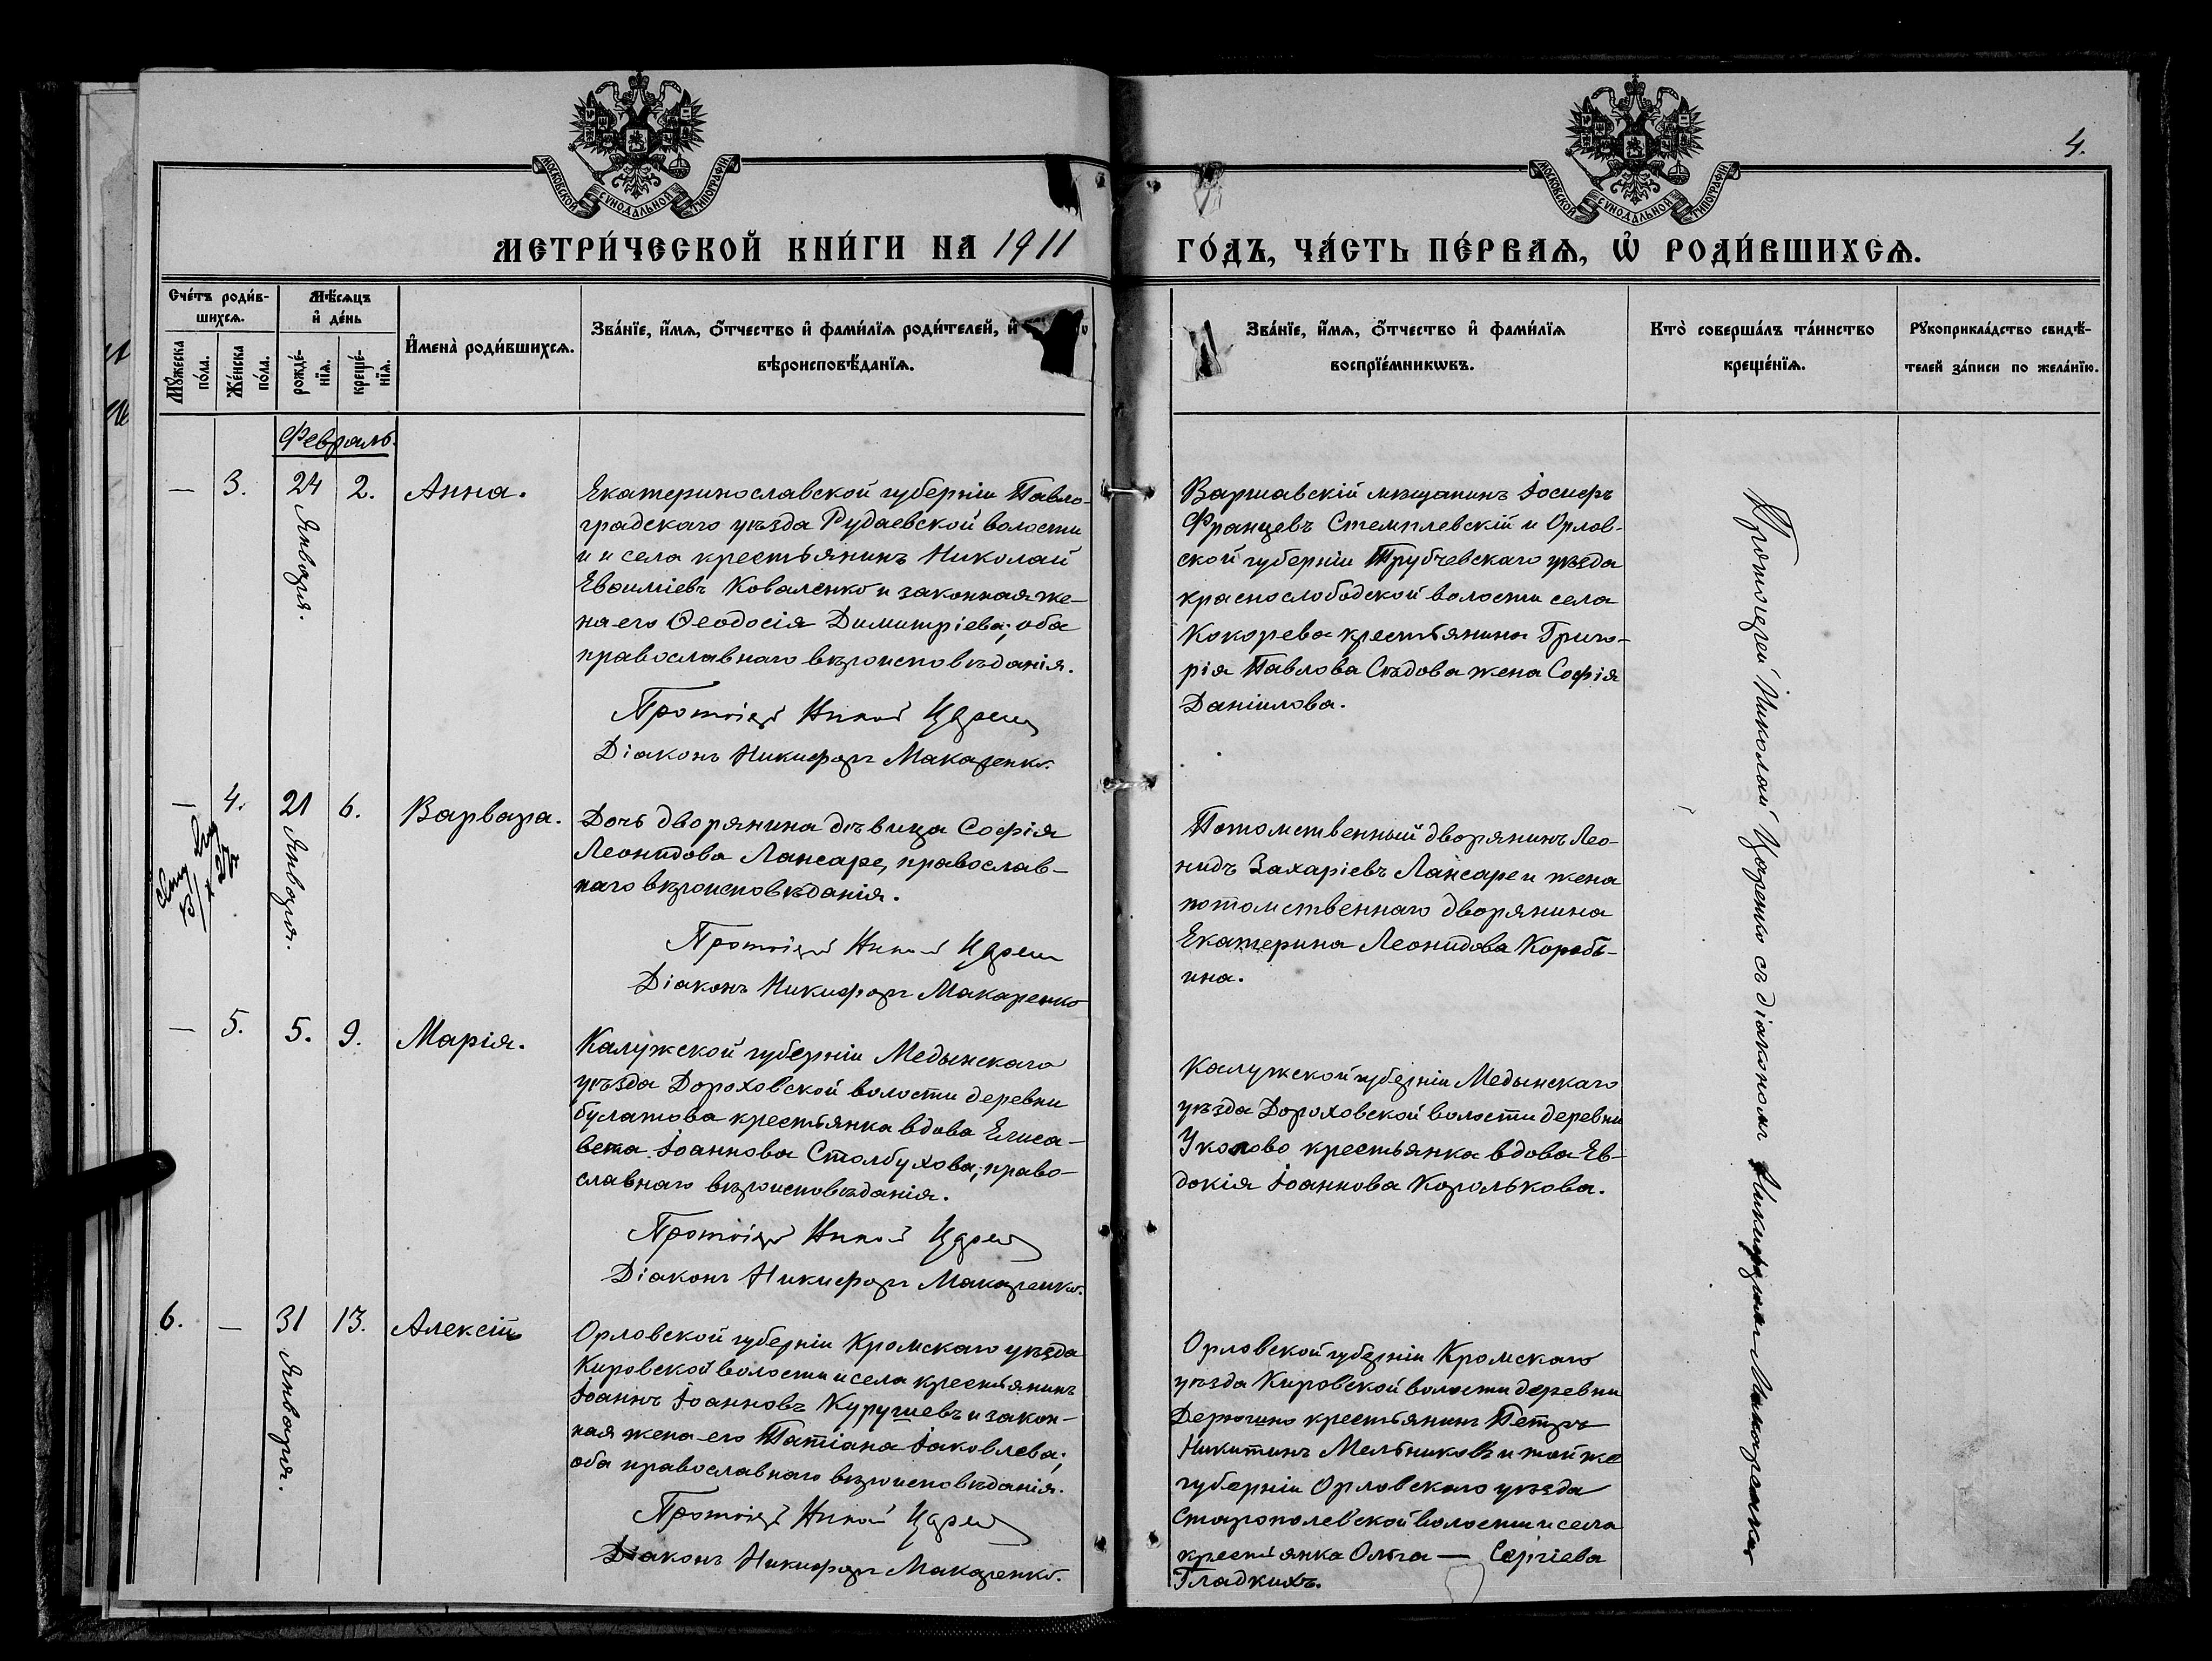 4.
МОСКОВСКОЙ СѴНОДАЛЬНОЙ ТИПОГРАФІИ
МОСКОВСКОЙ СѴНОДАЛЬНОЙ ТИПОГРАФІИ
МЕТРИ́ЧЕСКОЙ КНИ́ГИ НА 1911
ГО́ДЪ, ЧА́СТЬ ПЕ́РВАѦ, Ѡ҆ РОДИ́ВШИХСѦ.
Сче́тъ роди́в-
шихсѧ.
Мꙋ́жеска
по́ла.
Же́нска
по́ла.
Мѣ́сѧцъ
и҆ де́нь
рожде́-
нїѧ.
креще́-
нїѧ.
И҆мена̀ роди́вшихсѧ.
Зва́нїе, и҆́мѧ, ѻ҆́тчество и҆ фами́лїѧ роди́телей, и҆
вѣроисповѣ́данїѧ.
Зва́нїе, и҆́мѧ, ѻ҆́тчество и҆ фами́лїѧ
воспрїе́мникѡвъ.
Кто̀ соверша́лъ та́инство
креще́нїѧ.
Рꙋкоприкла́дство свидѣ́-
телей за́писи по жела́нїю.
Февраль.
— 3. 24 2. Анна.
Января.
Екатеринославской губерніи Павло-
градскаго уѣзда Рудаевской волости
и и села крестьянинъ Николай
Евѳиміевъ Коваленко и законная же-
на его Ѳеодосія Димитріева; оба
православнаго вѣроисповѣданія.
Протоіерей Никол Царен
Діаконъ Никифоръ Макаренко.
Варшавскій мѣщанинъ Іосифъ
Францевъ Стемплевскій и Орлов-
ской губерніи Трубчевскаго уѣзда
краснослободской волости села
Кокорева крестьянина Григо-
рія Павлова Сѣдова жена Софія
Даніилова.
— 4. 21 6. Варвара.
Января.
Дочь дворянина дѣвица Софія
Леонидова Лансаре, православ-
наго вѣроисповѣданія.
Протоіерей Никол Царен
Діаконъ Никифоръ Макаренко
Потомственный дворянинъ Лео-
нидъ Захаріевъ Лансаре и жена
потомственнаго дворянина
Екатерина Леонидова Коробь-
ина.
— 5. 5. 9. Марія.
Калужской губерніи Медынскаго
уѣзда Дороховской волости деревни
булатова крестьянка вдова Елиса-
вета Іоаннова Столбухова; право-
славнаго вѣроисповѣданія.
Протоіерей Никол Царен
Діаконъ Никифоръ Макаренко.
Калужской губерніи Медынскаго
уѣзда Дороховской волости деревни
Уколово крестьянка вдова Ев-
докія Іоаннова Королькова.
6. — 31 13. Алексій
Января.
Орловской губерніи Кромскаго уѣзда
Кировской волости и села крестьянинъ
Іоаннъ Іоанновъ Куручиевъ и закон-
ная жена его Татіана Іаковлева;
оба православнаго вѣроисповѣданія.
Протоіерей Никол Царен
Діаконъ Никифоръ Макаренко.
Орловской губерніи Кромскаго
уѣзда Кировской волости деревни
Дерюгино крестьянинъ Петръ
Никитинъ Мельниковъ и той же
губерніи Орловскаго уѣзда
Старополевской волости и села
крестьянка Ольга — Сергіева
Гладкихъ.
Протоіерей Николай Царенко съ діакономъ Никифоромъ Макаренко